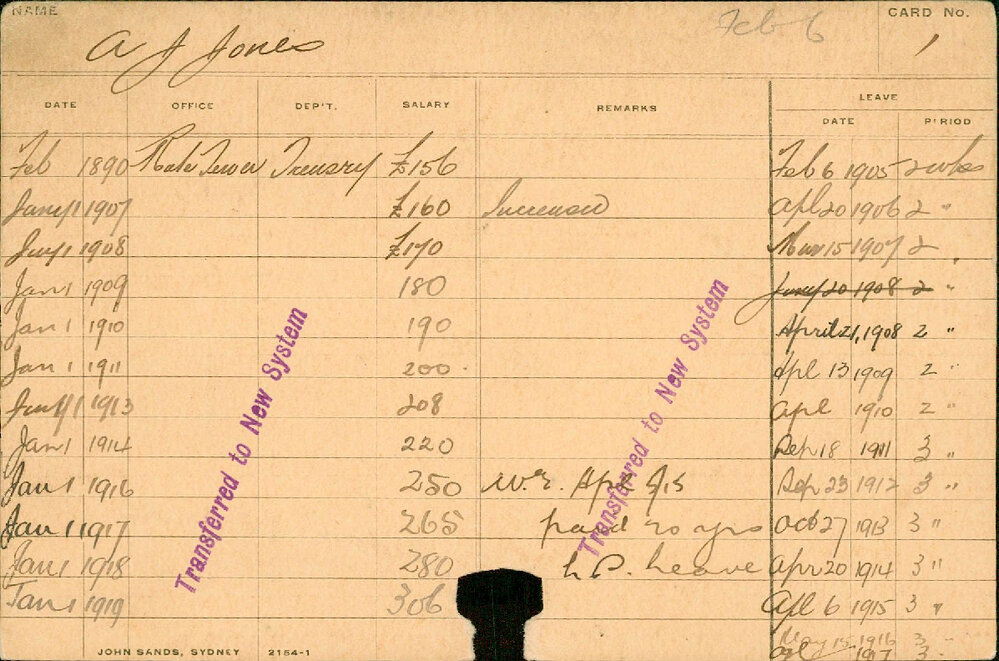 NAME A J Jones Feb 6 CARD No. 1
DATE OFFICE DEP'T. SALARY REMARKS LEAVE
DATE PERIOD
Feb 1890 Treasury £156 Feb 6 1905 2 wks
1 1907 £160 Increase Apl 20 1906 2 "
1 1908 £170 Mar 15 1907 2 "
Jan 1 1909 180 20 1908 2 "
Jan 1 1910 190 April 21, 1908 2 "
Jan 1 1911 200 Apl 13 1909 2 "
1 1913 208 Apl 1910 2 "
Jan 1 1914 220 Sep 18 1911 3 "
Jan 1 1916 250 Apl Sep 23 1912 3 "
Jan 1 1917 265 paid 20 yrs Oct 27 1913 3 "
Jan 1 1918 280 Leave Apr 20 1914 3 "
Jan 1 1919 306 Apl 6 1915 3 "
May 15 1916 3 "
1917 3 "
Transferred to New System
Transferred to New System
JOHN SANDS, SYDNEY 2154-1